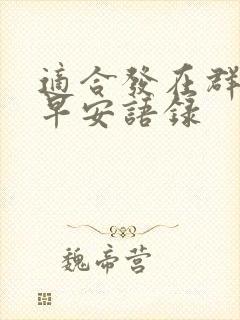 適合發在群
早安語錄
魏帝营